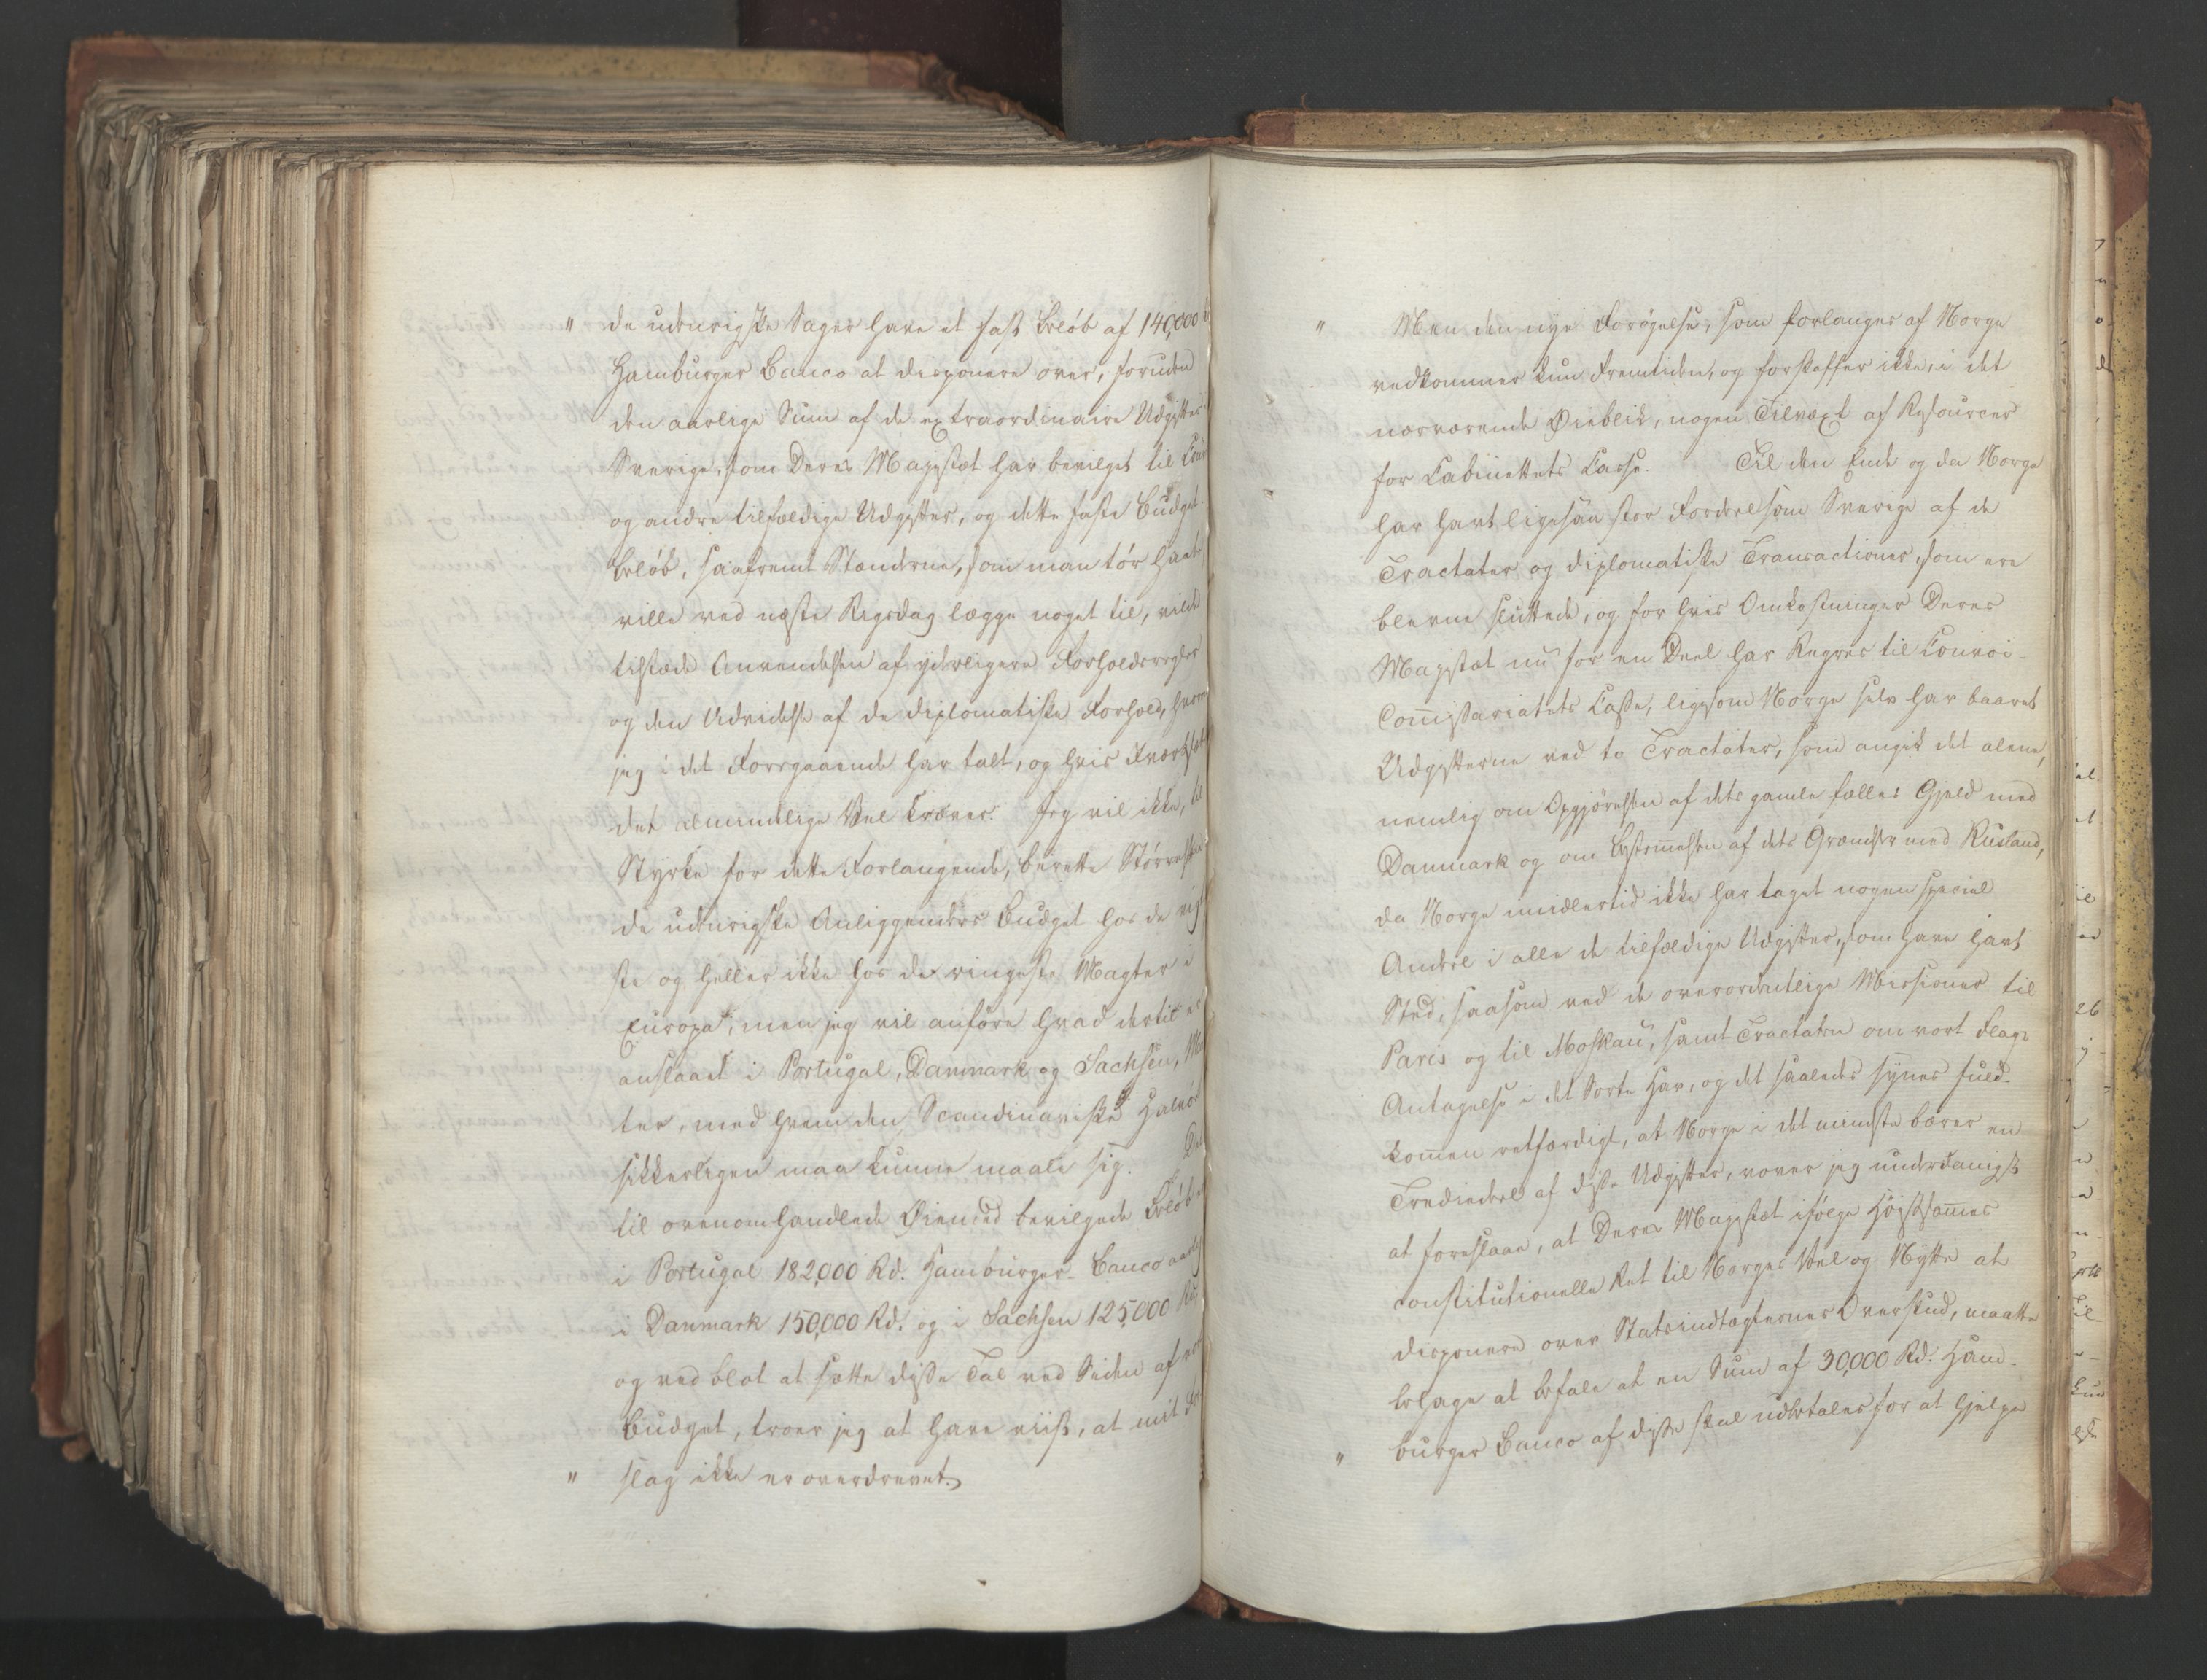 " de udenrigske Sager have et fast Beløb af 140,000
Hamburger Banco at disponere over, foruden
den aarlige Sum af de extraordinaire Udgifter
Sverige, som Deres Majestæt har bevilget til
og andre tilfældige Udgifter, og dette faste Budget-
Beløb, saafremt Stænderne, som man tør haabe
ville ved næste Rigsdag lægge noget til, vilde
tilstæde Anvendelsen af yderligere Forholdsregler
og den Udvidelse af de diplomatiske Forhold, hvorom
jeg i det Foregaaende har talt, og hvis Iværksæt
det almindelige Vel kræver. Jeg vil ikke, til
Styrke for dette Forlangende, berette Størrelsen
de udenrigske Anliggenders Budget hos de
ste og heller ikke hos de ringeste Magter i
Europa; men jeg vil anføre hvad dertil er
anslaaet i Portugal, Danmark og Sachsen,
ter, med hvem den Scandinaviske Halvø
sikkerligen maa kunne maale sig.
til ovenomhandlede Øiemed bevilgede Beløb
i Portugal 182,000 Rd. Hamburger-Banco aarlig
i Danmark 150,000 Rd. og i Sachsen 125,000
og ved blot at sætte disse Tal ved Siden af vor
Budget, troer jeg at have viist, at mit For
" slag ikke er overdrevet.
" Men den nye Forøgelse, som forlanges af Norge
vedkommer kun Fremtiden, og forskaffer ikke, i det
nærværende Øieblik, nogen Tilvæxt af Resourcer
for Cabinettets Casse. Til den Ende og da Norge
har havt ligesaa stor Fordeel som Sverige af de
Tractater og diplomatiske Transactioner, som ere
blevne sluttede, og for hvis Omkostninger Deres
Majestæt nu for en Deel har Regres til Convoi-
Commissariatets Casse, ligesom Norge selv har baaret
Udgifterne ved to Tractater, som angik det alene,
nemlig om Opgjørelsen af dets gamle fælles Gjeld med
Danmark og om Bestemmelsen af dets Grændser med Rusland,
da Norge imidlertid ikke har taget nogen special
Andeel i alle de tilfældige Udgifter, som have havt
Sted, saasom ved de overordentlige Missioner til
Paris og til Moskau, samt Tractaten om vort Flags
Antagelse i det Sorte Hav, og det saaledes synes fuld-
kommen retfærdigt, at Norge i det mindste bærer en
Trediedeel af disse Udgifter, vover jeg underdanigst
at foreslaae, at Deres Majestæt ifølge Høistsammes
constitutionelle Ret til Norges Vel og Nytte at
disponere over Statsindtægternes Overskud, maatte
behage at befale at en Sum af 30,000 Rd. Ham-
" burger Banco af disse skal udbetales for at hjelpe